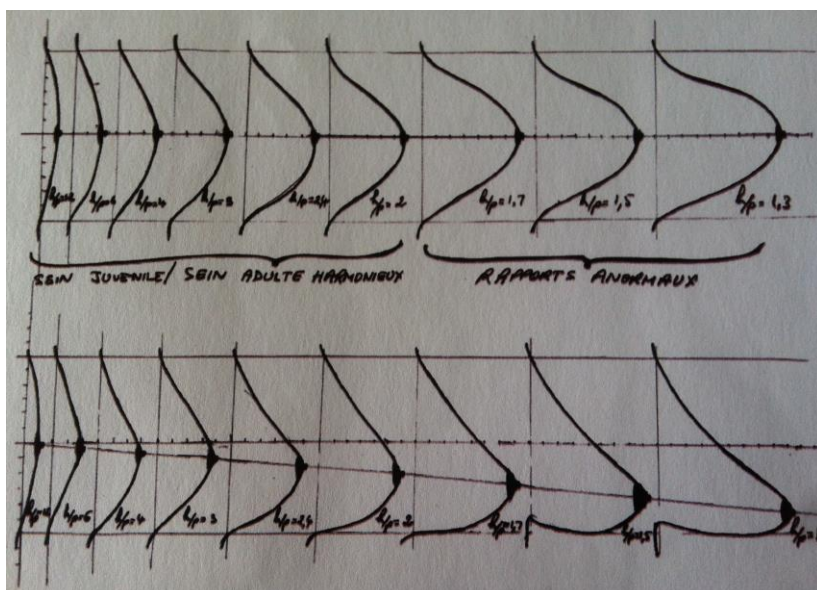 h/p=6 h/p=4 h/p=3 h/p=2,4 h/p=2 h/p=1,7 h/p=1,5 h/p=1,3
SEIN JUVENILE/ SEIN ADULTE HARMONIEUX RAPPORTS ANORMAUX
h/p=6 h/p=4 h/p=3 h/p=2,4 h/p=2 h/p=1,7 h/p=1,5